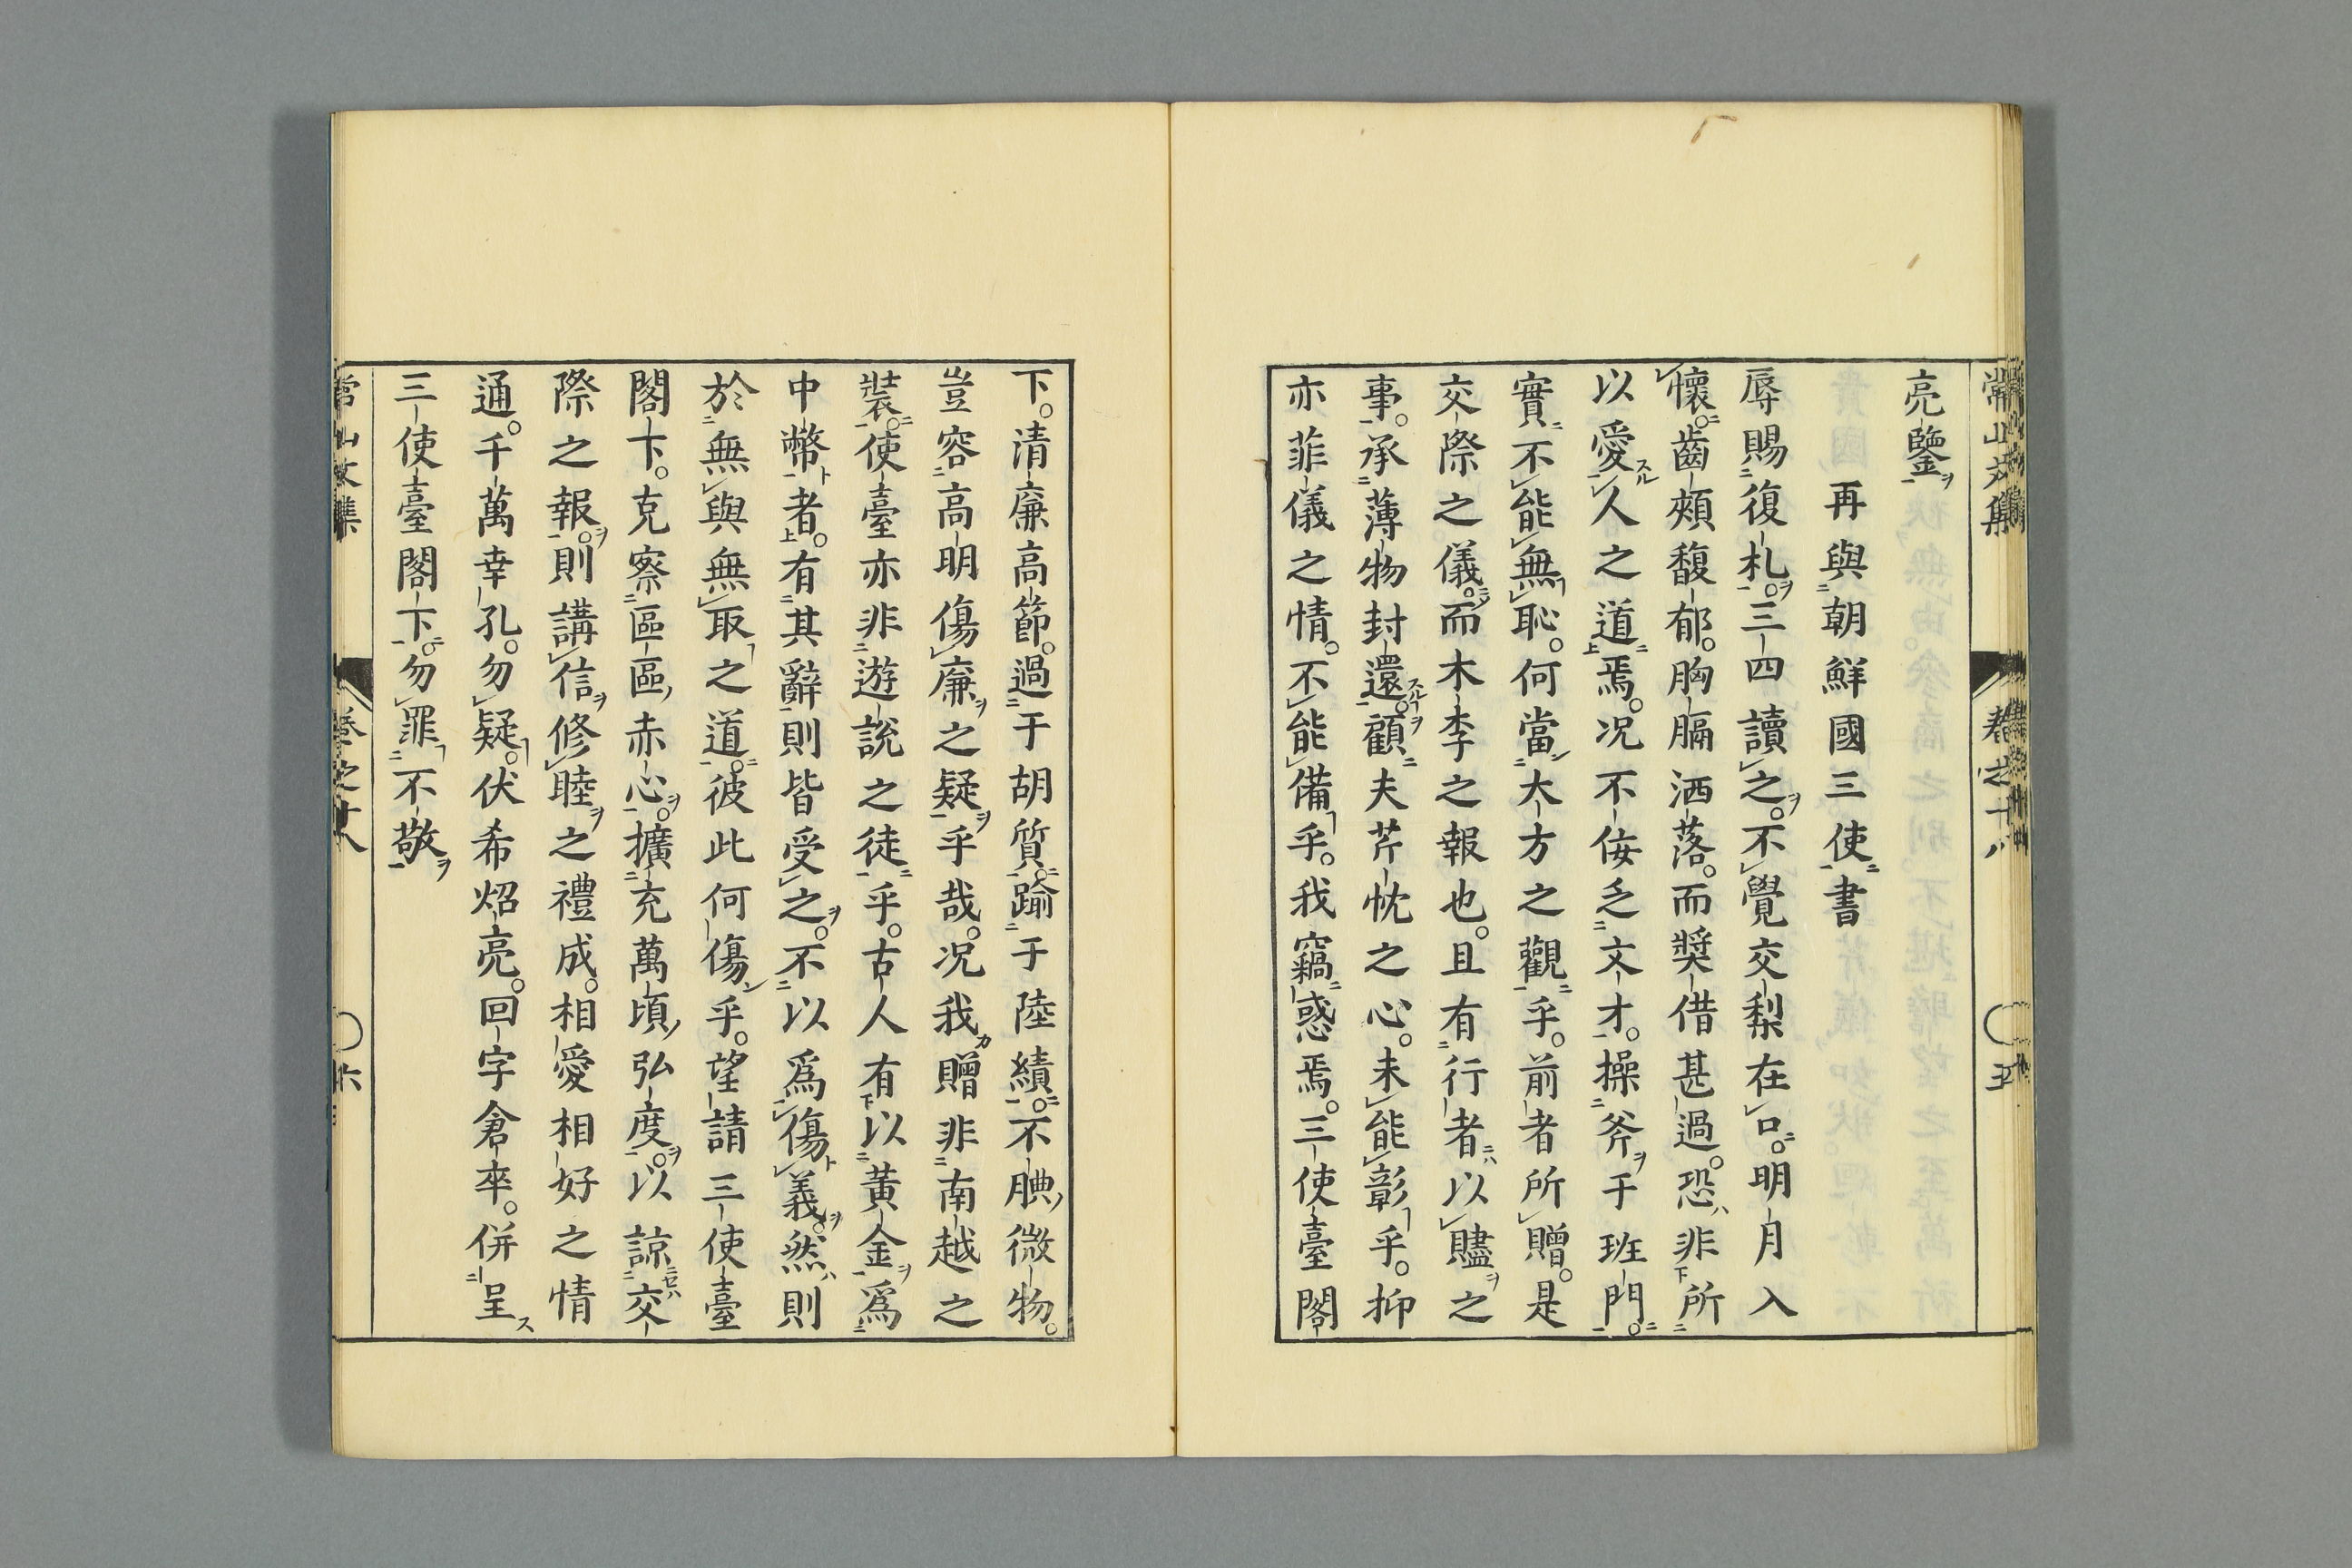 亮鑒
再與朝鮮國三使書
辱賜復札。三四讀之。不覺交梨在口。明月入
懷。齒頰馥郁。胸膈洒落。而奬借甚過。恐非所
以愛人之道焉。況不佞乏文才。操斧于班門。
實不能無恥。何當大方之觀乎。前者所贈。是
交際之儀。而木李之報也。且有行者以贐之
事。承薄物封還。顧夫芹忱之心。未能彰乎。抑
亦菲儀之情。不能備乎。我竊惑焉。三使臺閣
下。清廉高節。過于胡質。踰于陸績。不腆微物。
豈容高明傷廉之疑乎哉。況我贈非南越之
裝。使臺亦非遊說之徒乎。古人有以黃金爲
中幣者。有其辭則皆受之。不以爲傷義。然則
於無與無取之道。彼此何傷乎。望請三使臺
閣下。克察區區赤心。擴充萬頃弘度。以諒交
際之報。則講信修睦之禮成。相愛相好之情
通。千萬幸孔。勿疑。伏希炤亮。回字倉卒。併呈
三使臺閣下。勿罪不敬